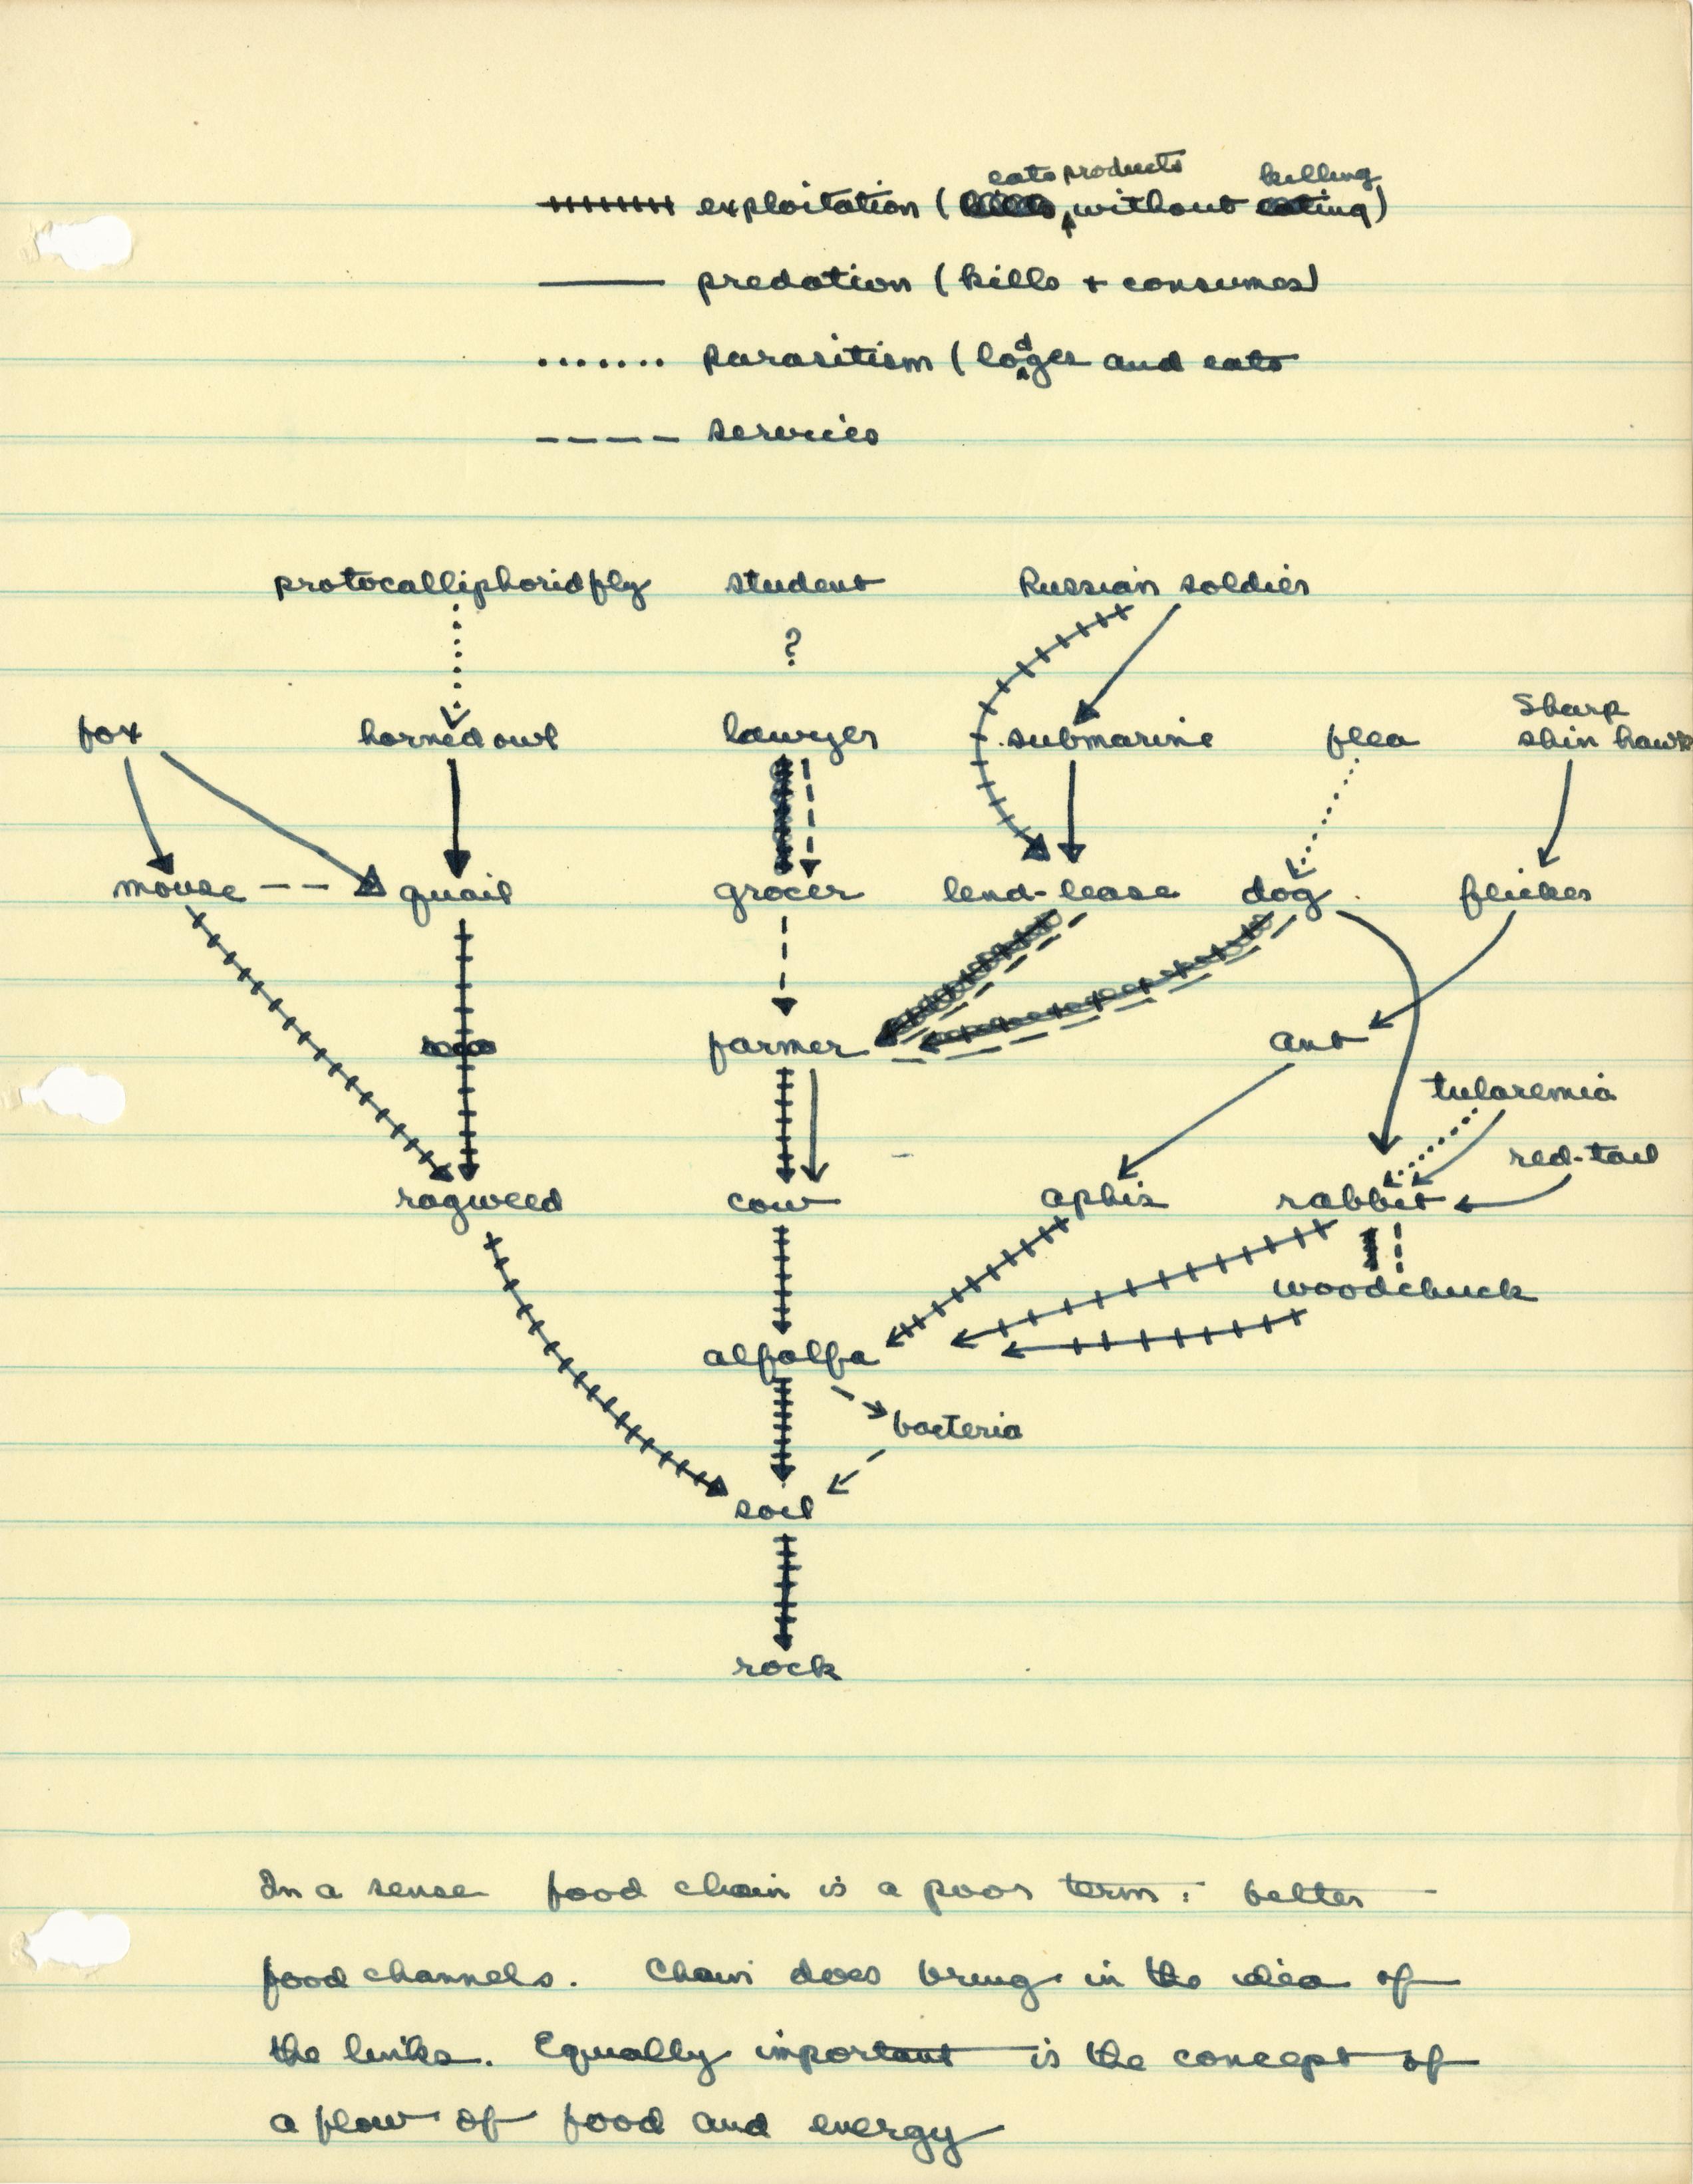 eats products killing
exploitation ( without )
predation (kills + consumes)
parasitism (lodges and eats
services
protocalliphorid fly student Russian soldier
?
fox horned owl lawyer submarine flea Sharp
shin hawk
mouse quail grocer lend-lease dog flicker
farmer ant
tularemia
red-tail
ragweed cow aphis rabbit
woodchuck
alfalfa
bacteria
soil
rock
In a sense food chain is a poor term: better
food channels. Chain does bring in the idea of
the links. Equally important is the concept of
a flow of food and energy